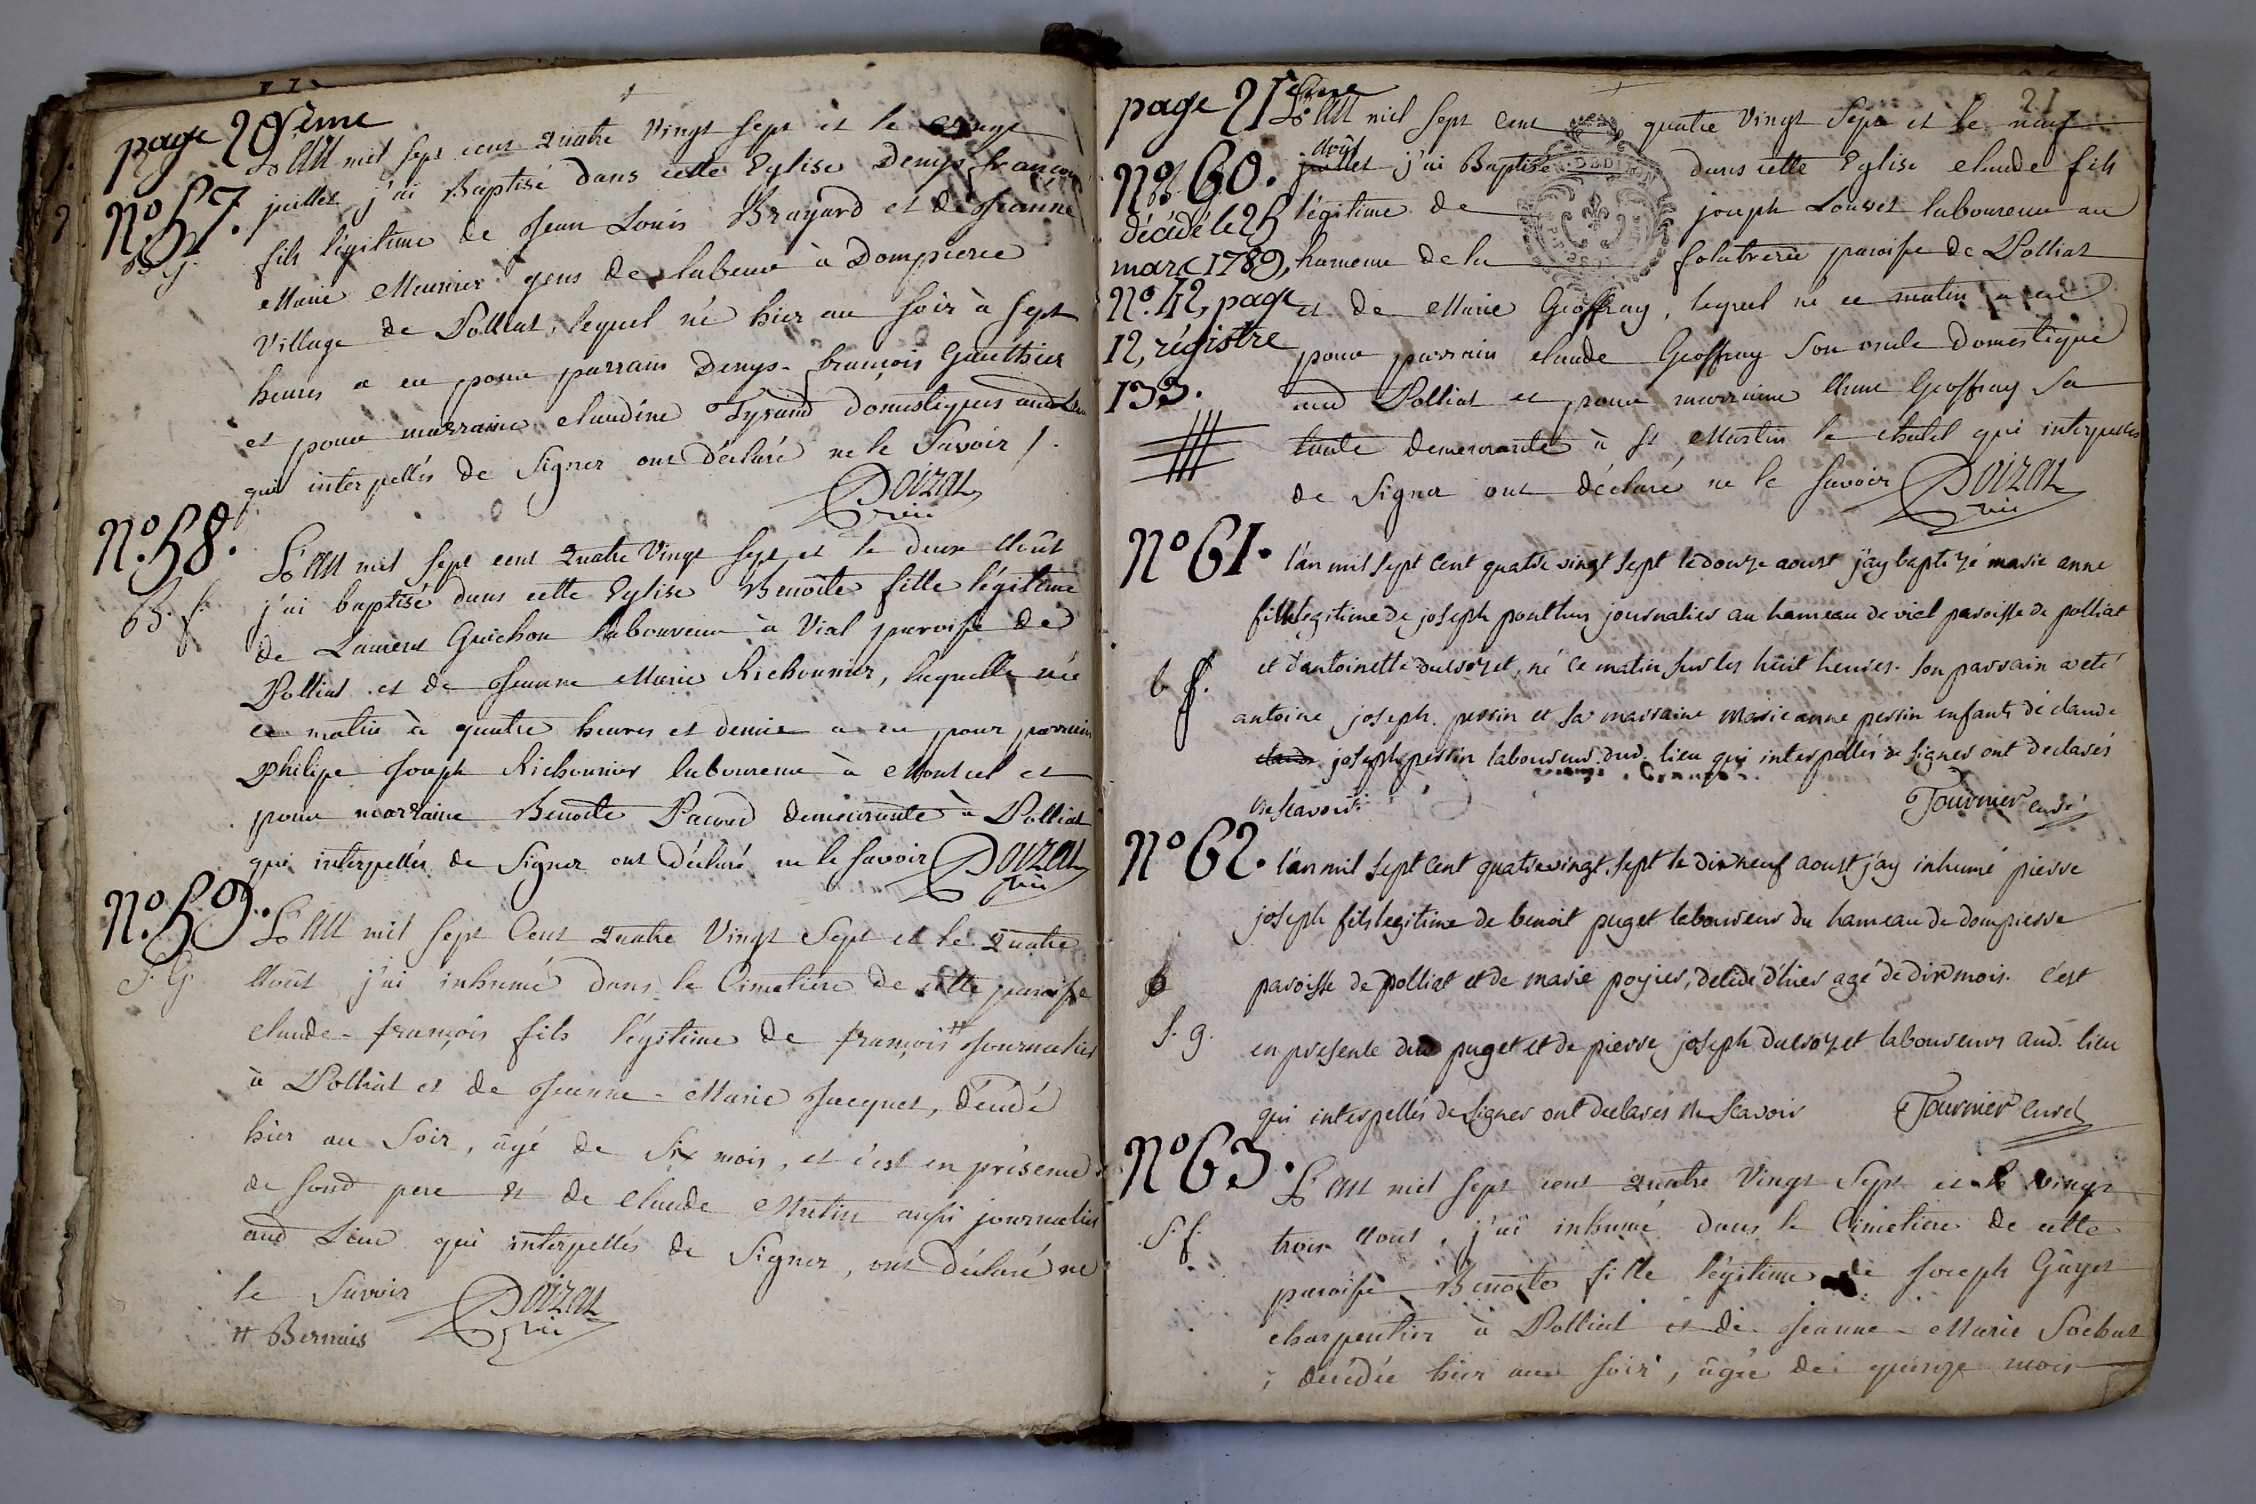 page 20ème
L'an mil sept cent quatre vingt sept et le vingt
No. 57.
juillet j'ai Baptisé dans cette Eglise Denys françois
b. g.
fils légitime de Jean Louis Brayard et de Jeanne
Marie Meunier gens de labeur à Dompierre
Village de Polliat, lequel né hier au soir à sept
heures a eu pour parrain Denys-françois Gauthier
et pour marraine claudine Tyrand domestiques aud. lieu
qui interpellés de signer ont déclaré ne le savoir /.
Doizat
vic
No. 58.
L'an mil sept cent quatre Vingt sept et le deux Août
b. f.
j'ai baptisé dans cette Eglise Benoîte fille légitime
de Laurent Guichon laboureur à Vial paroisse de
Polliat et de Jeanne Marie Richonnier, laquelle née
ce matin à quatre heures et demie a eu pour parrain
Philipe Joseph Richonnier laboureur à Montcel et
pour marraine Benoîte Pacoud demeurante à Polliat
qui interpellés de signer ont déclaré ne le savoir Doizat
vic
No. 59.
L'an mil sept Cent quatre Vingt Sept et le quatre
S. G.
Août j'ai inhumé dans le Cimetière de cette paroisse
claude-françois fils légitime de françois # journalier
à Polliat et de Jeanne-Marie Jacquet, décédé
hier au soir, âgé de six mois, et c'est en présence
de sond. pere et de claude Mutin aussi journalier
aud. Lieu qui interpellés de Signer, ont déclaré ne
le Savoir Doizat
vic
# Bernais
page 21ème
21
L'an mil sept cent quatre vingt sept et le neuf
No. 60.
août
juillet j'ai Baptisé dans cette Eglise claude fils
décédé le 25
légitime de joseph Louvet laboureur au
mars 1789,
hameau de la folatrerie paroisse de Polliat
No. 42, page
et de Marie Geoffray, lequel né ce matin a eu
12, régistre
pour parrain claude Geoffray son oncle domestique
133.
aud Polliat et pour marraine Anne Geoffray sa
tante demeurante à St Martin le chatel qui interpellés
de signer ont déclaré ne le savoir Doizat
vic
No 61.
l'an mil sept cent quatre vingt sept le douze aoust j'ay baptizé marie anne
fille legitime de joseph ponthus journalier au hameau de viel paroisse de polliat
b f.
et d'antoinette duvozet, né ce matin sur les huit heures. son parrain a eté
antoine joseph perrin et sa marraine marie anne perrin enfants de claude
claude joseph perrin laboureur dud. lieu qui interpellés de signer ont declarés
ne scavoir Tournier curé
No 62.
l'an mil sept cent quatre vingt sept le dix neuf aoust j'ay inhumé pierre
joseph fils legitime de benoit puget laboureur du hameau de dompierre
paroisse de polliat et de marie poyier, decedé d'hier agé de dix mois. c'est
S. g.
en presente dud puget et de pierre joseph duvozet laboureurs aud. lieu
qui interpellés de signer ont declarés ne scavoir Tournier curé
No 63.
L'an mil sept cent quatre Vingt Sept et le vingt
S. f.
trois Aout, j'ai inhumé dans le Cimetière de cette
paroisse Benoîte fille légitime de Joseph Guyet
charpentier à Polliat et de Jeanne-Marie Sochat
, décédée hier au soir, âgée de quinze mois